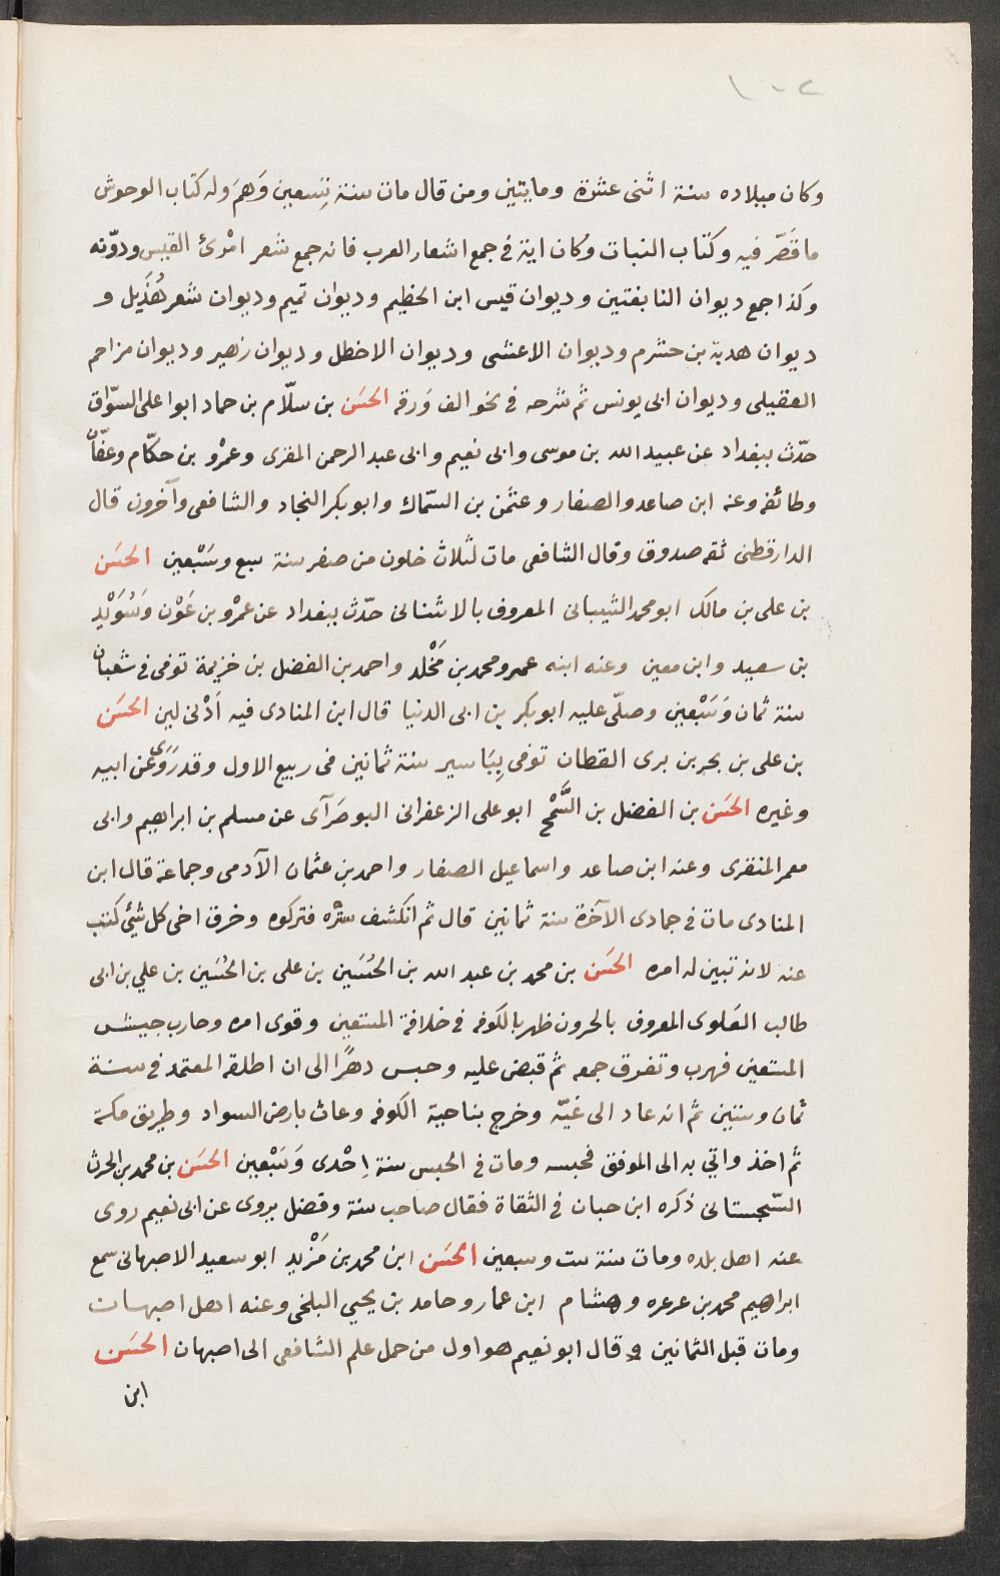 ١٠٢
وكان ميلاده سنة اثنى عشرة ومايتين ومن قال مات سنة تِسعين وَهمَ وله كتاب الوحوش
ما قَصّر فيه وكتاب النبات وكان اية فى جمع اشعار العرب فانه جمع شعر امْرئ القيس ودوّنه
وكذا جمع ديوان النابغتين وديوان قيس ابن الخطيم وديوان تميم وديوان شعر هُذَيل و
ديوان هدبة بن خشرم وديوان الاعشى وديوان الاخطل وديوان زهير وديوان مزاحم
العقيلى وديوان ابى يونس ثم شرحه فى نحو الف وَرقه الحسَن بن سلّام بن حماد ابوا على السوّاق
حدّث ببغداد عن عبيد الله بن موسى وابى نعيم وابى عبد الرحمن المقرى وعمْرو بن حكّام وعفّان
وطائفه وعنه ابن صاعد والصفار وعثمٰن بن السّماك وابو بكر النجاد والشافعى وآخرون قال
الدارقطنى ثقه صدوق وقال الشافعى مات لثلاث خلون من صفر سنة سبع وسَبْعين الحسَن
بن على بن مالك ابو محمد الشيبانى المعروف بالاشنانى حدّث ببغداد عن عمْرو بن عَوْن وسُوَيْد
بن سعيد وابن معين وعنه ابنه عمر ومحمد بن مَخْلد واحمد بن الفضل بن خزيمة توفى فى شعبان
سنة ثمان وَسَبْعين وصلّى عليه ابو بكر بن ابى الدنيا قال ابن المنادى فيه اَدْنى لين الحسَن
بن على بن بحر بن برى القطان توفى بِبَاسير سنة ثمانين فى ربيع الاول وقد رَوَى عن ابيه
وغيره الحسَن بن الفضل بن السَّمْح ابو على الزعفرانى البوصَرآى عن مسلم بن ابراهيم وابى
معمر المنقرى وعنه ابن صاعد واسماعيل الصفار واحمد بن عثمان الآدمى وجماعة قال ابن
المنادى مات فى جمادى الآخرة سنة ثمانين قال ثم انكشف ستْره فتركوه وخرق اخى كل شيئ كتب
عنه لانه تبين له امره الحسَن بن محمد بن عبد الله بن الحُسَين بن على بن الحُسَين بن علي بن ابى
طالب العَلوى المعروف بالحرون ظهر بالكوفه فى خلافة المستعين وقوى امره وحارب جيش
المستعين فهرب وتفرق جمعه ثم قبض عليه وحبس دهرًا الى ان اطلقه المعتمد فى سنة
ثمان وستين ثم انه عاد الى غيّه وخرج بناحية الكوفه وعاث بارض السواد وطريق مكة
ثم اخذ واتي به الى الموفق فحبسه ومات فى الحبس سنة اِحْدى وَسَبْعين الحسَن بن محمد بن الحرث
السّجستانى ذكره ابن حبان فى الثقاة فقال صاحب سنة وفضل يروى عن ابى نعيم روى
عنه اهل بلده ومات سنة ست وسبعين الحسَن ابن محمد بن مَزْيد ابو سعيد الاصبهانى سمع
ابراهيم محمد بن عرعره وهشام ابن عمار وحامد بن يحيي البلخى وعنه اهل اصبهان
ومات قبل الثمانين وقال ابو نعيم هو اول من حمل علم الشافعى الى اصبهان الحسَن
ابن